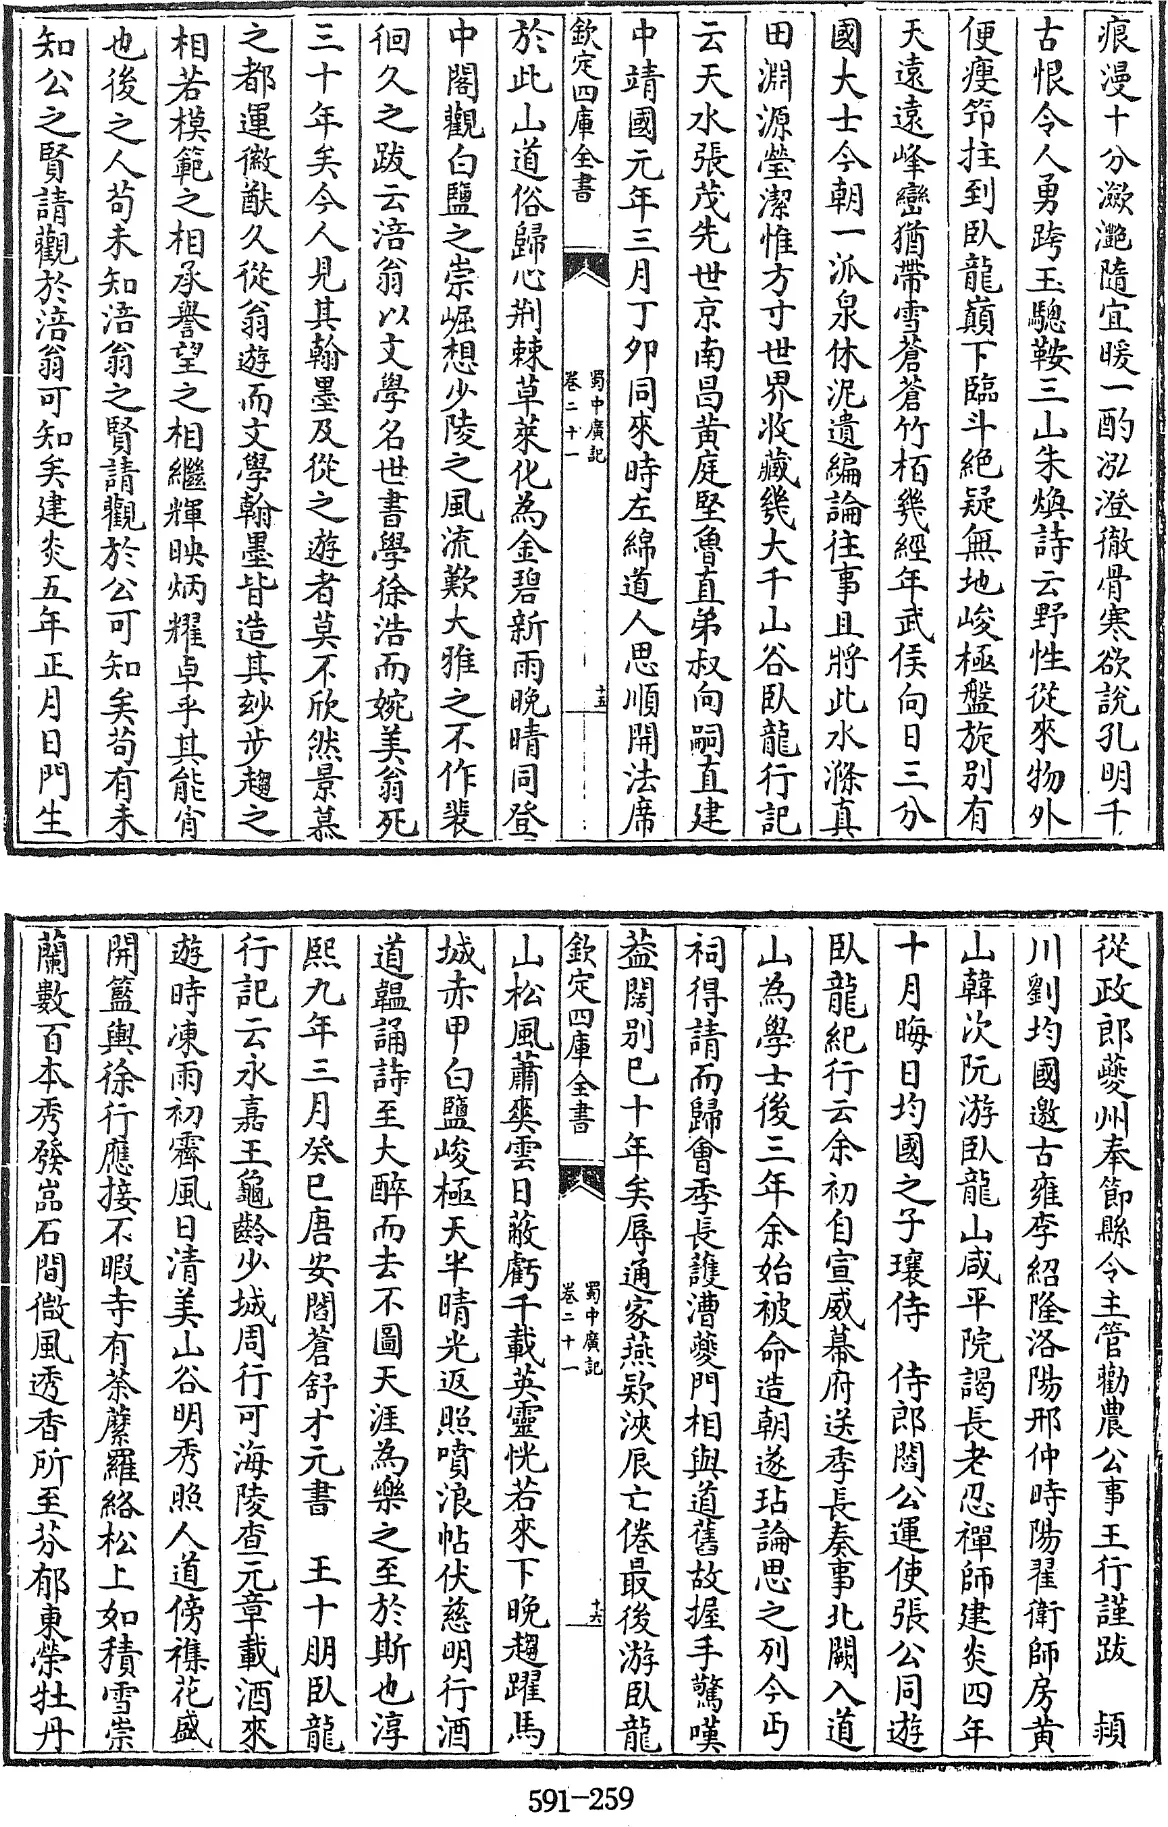 痕漫十分瀲灔隨宜暖一酌泓澄徹骨寒欲說孔明千
古恨令人勇跨玉驄鞍三山朱煥詩云野性從來物外
便瘦筇拄到臥龍巔下臨斗絕疑無地峻極盤旋别有
天遠遠峰巒猶帶雪蒼蒼竹栢幾經年武侯向日三分
國大士今朝一泒泉休泥遺編論往事且將此水滌真
田淵源瑩潔惟方寸世界收藏幾大千山谷臥龍行記
云天水張茂先世京南昌黄庭堅魯直弟叔向嗣直建
中靖國元年三月丁夘同來時左綿道人思順開法席
欽定四庫全書
蜀中廣記
卷二十一
十五
於此山道俗歸心荆棘草萊化為金碧新雨晚晴同登
中閣觀白鹽之崇崛想少陵之風流歎大雅之不作裴
徊久之跋云涪翁以文學名世書學徐浩而婉美翁死
三十年矣今人見其翰墨及從之遊者莫不欣然景慕
之都運徽猷久從翁遊而文學翰墨皆造其玅步趨之
相若模範之相承譽望之相繼輝映炳耀卓乎其能肖
也後之人苟未知涪翁之賢請觀於公可知矣苟有未
知公之賢請觀於涪翁可知矣建炎五年正月日門生
從政郎夔州奉節縣令主管勸農公事王行謹跋　頴
川劉均國邀古雍李紹隆洛陽邢仲時陽翟衛師房黄
山韓次阮游臥龍山咸平院謁長老忍禪師建炎四年
十月晦日均國之子瓌侍　侍郎閻公運使張公同遊
臥龍紀行云余初自宣威幕府送季長奏事北闕入道
山為學士後三年余始被命造朝遂玷論思之列今丐
祠得請而歸會季長護漕夔門相與道舊故握手驚嘆
葢闊别已十年矣辱通家燕欵浹辰亡倦最後游臥龍
欽定四庫全書
蜀中廣記
卷二十一
十六
山松風蕭爽雲日蔽虧千載英靈恍若來下晚趨躍馬
城赤甲白鹽峻極天半晴光返照噴浪帖伏慈明行酒
道韞誦詩至大醉而去不圖天涯為樂之至於斯也淳
熙九年三月癸巳唐安閻蒼舒才元書　王十朋臥龍
行記云永嘉王龜齡少城周行可海陵查元章載酒來
遊時凍雨初霽風日清美山谷明秀照人道傍襍花盛
開籃輿徐行應接不暇寺有荼蘼羅絡松上如積雪崇
蘭數百本秀發嵓石間微風透香所至芬郁東榮牡丹
591-259